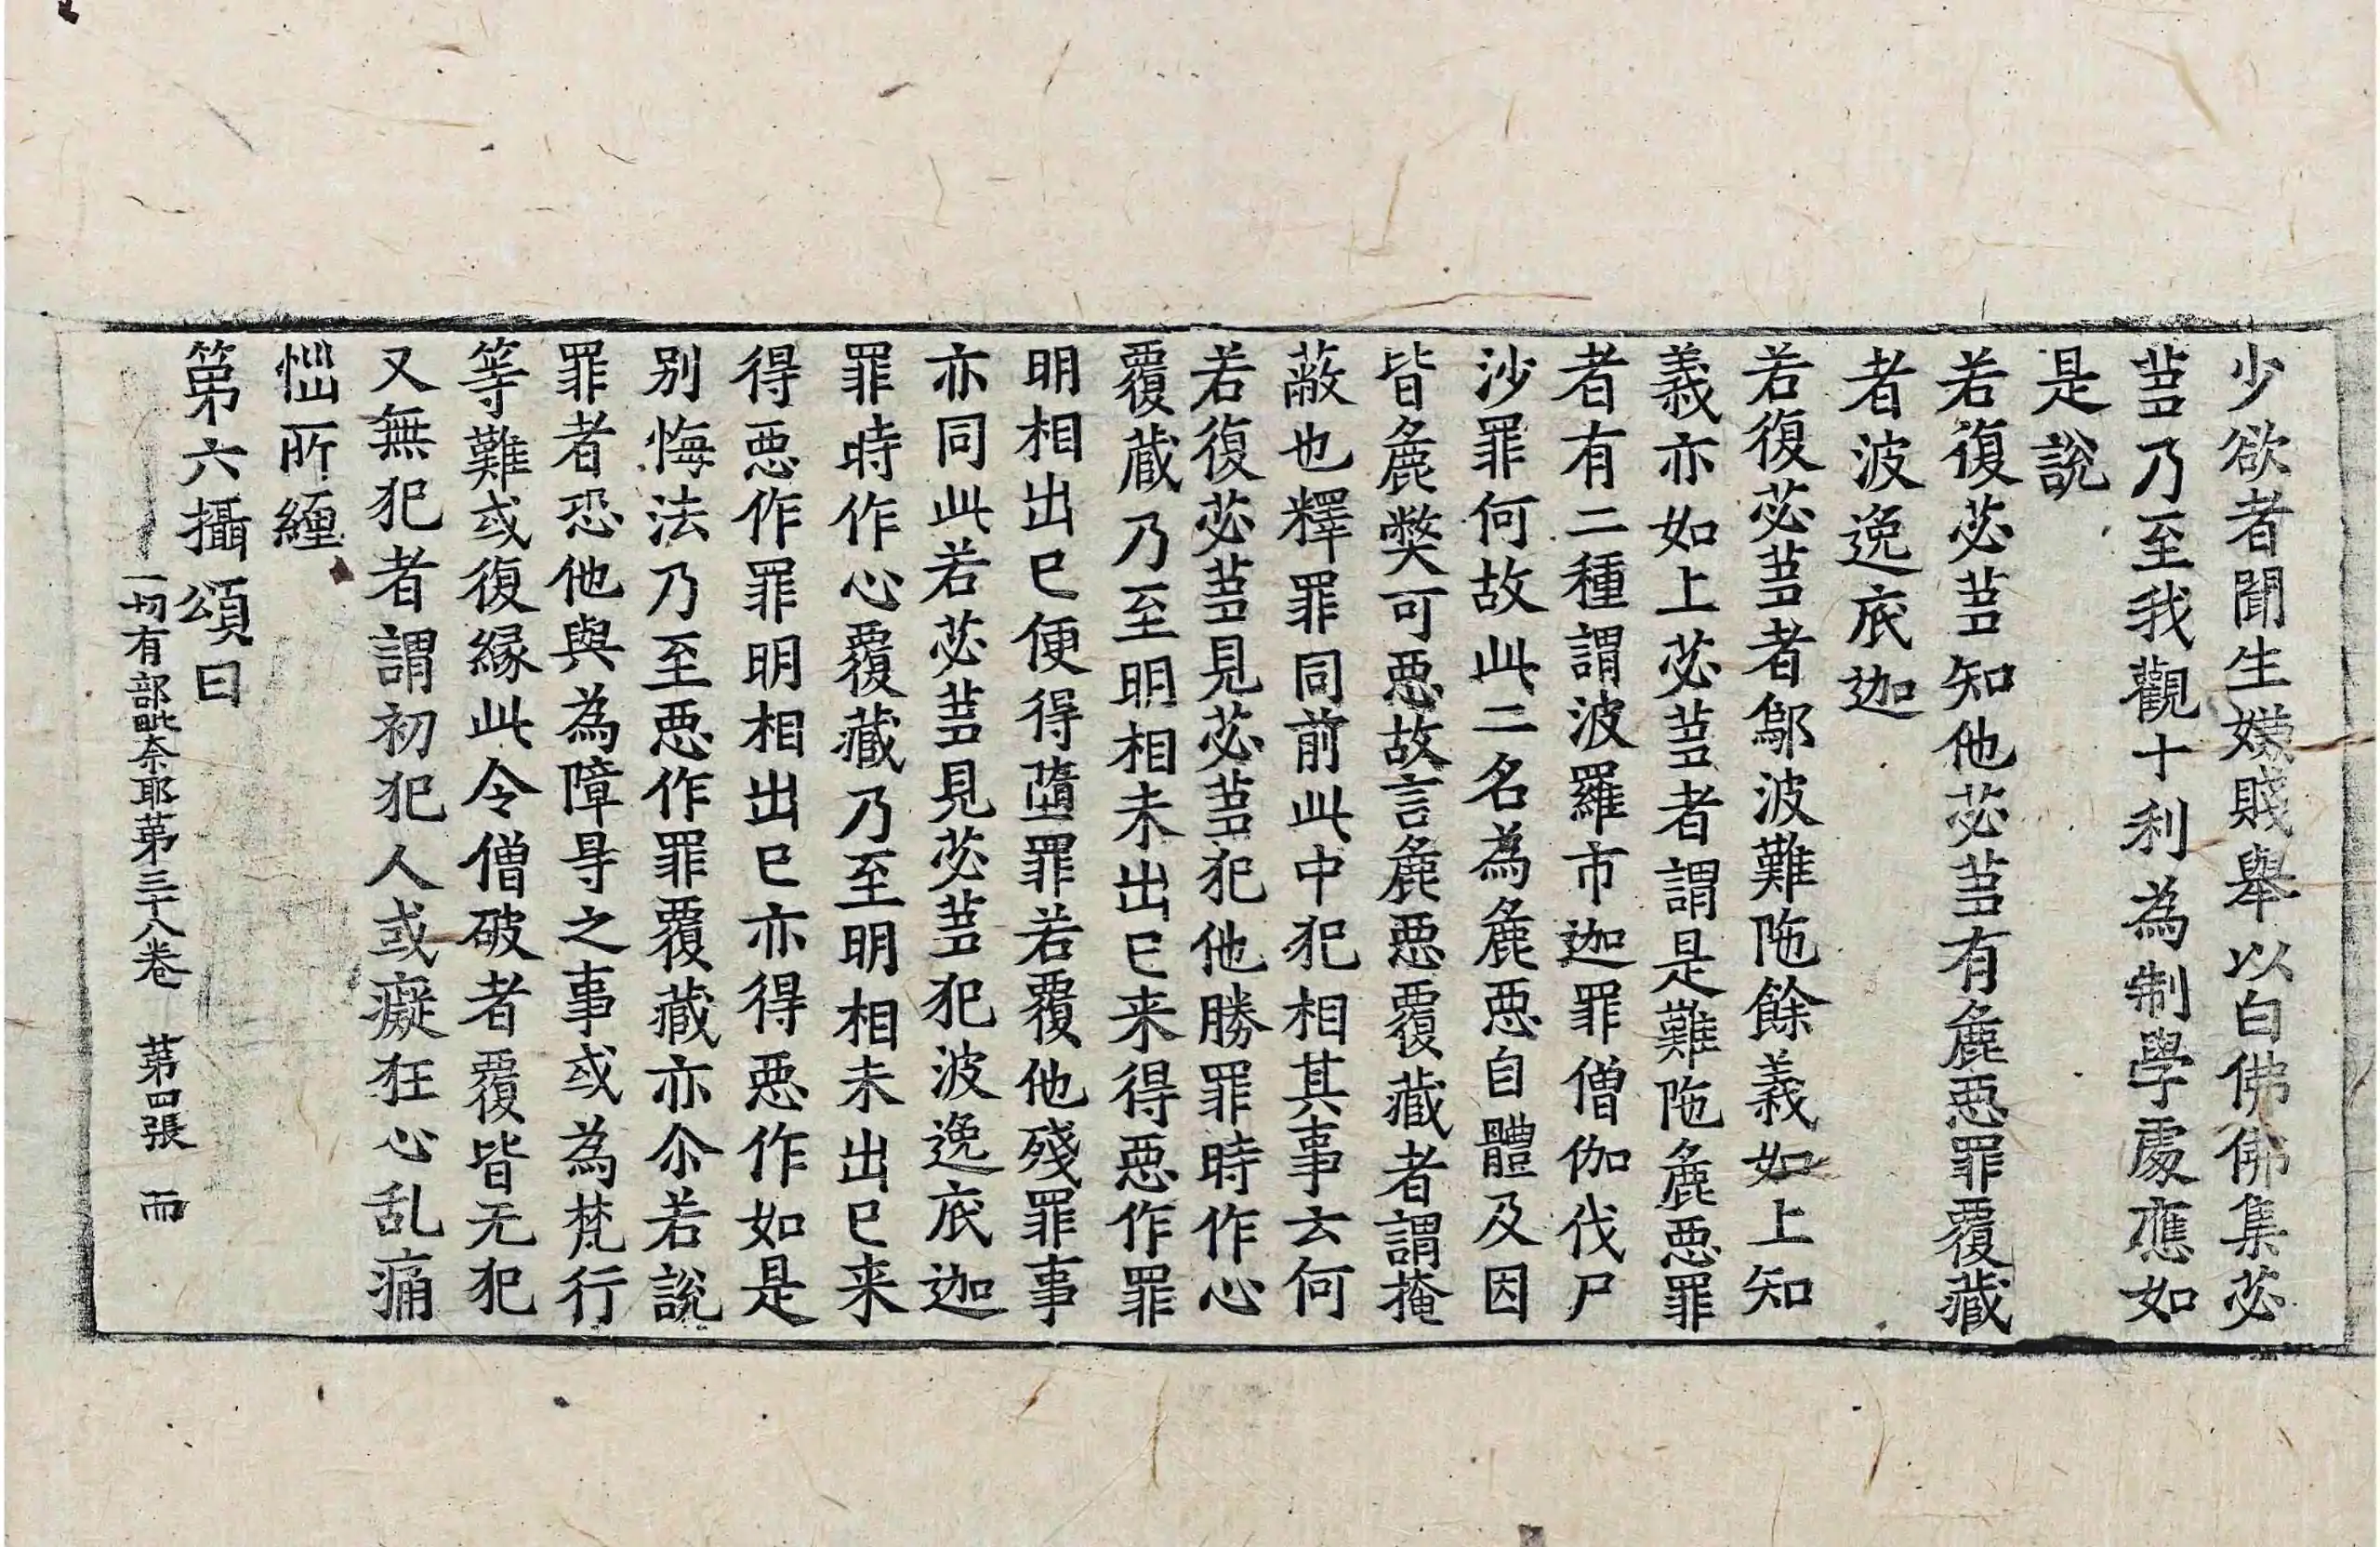 少欲者聞生嫌賎舉以白佛佛集苾
蒭乃至我觀十利為制學處應如
是說
若復苾蒭知他苾蒭有麁惡罪覆藏
者波逸底迦
若復苾蒭者鄔波難陁餘義如上知
義亦如上苾蒭者謂是難陁麁惡罪
者有二種謂波羅市迦罪僧伽伐尸
沙罪何故此二名為麁惡自體及因
皆麁弊可惡故言麁惡覆藏者謂掩
蔽也釋罪同前此中犯相其事云何
若復苾蒭見苾蒭犯他勝罪時作心
覆藏乃至明相未出已来得惡作罪
明相出已便得墮罪若覆他殘罪事
亦同此若苾蒭見苾蒭犯波逸底迦
罪時作心覆藏乃至明相未出已来
得惡作罪明相出已亦得惡作如是
别悔法乃至惡作罪覆藏亦尒若說
罪者恐他與為障㝵之事或為梵行
等難或復緣此令僧破者覆皆无犯
又無犯者謂初犯人或癡狂心乱痛
惱所纏
第六攝頌曰
一切有部毗奈耶第三十八卷 第四張 而